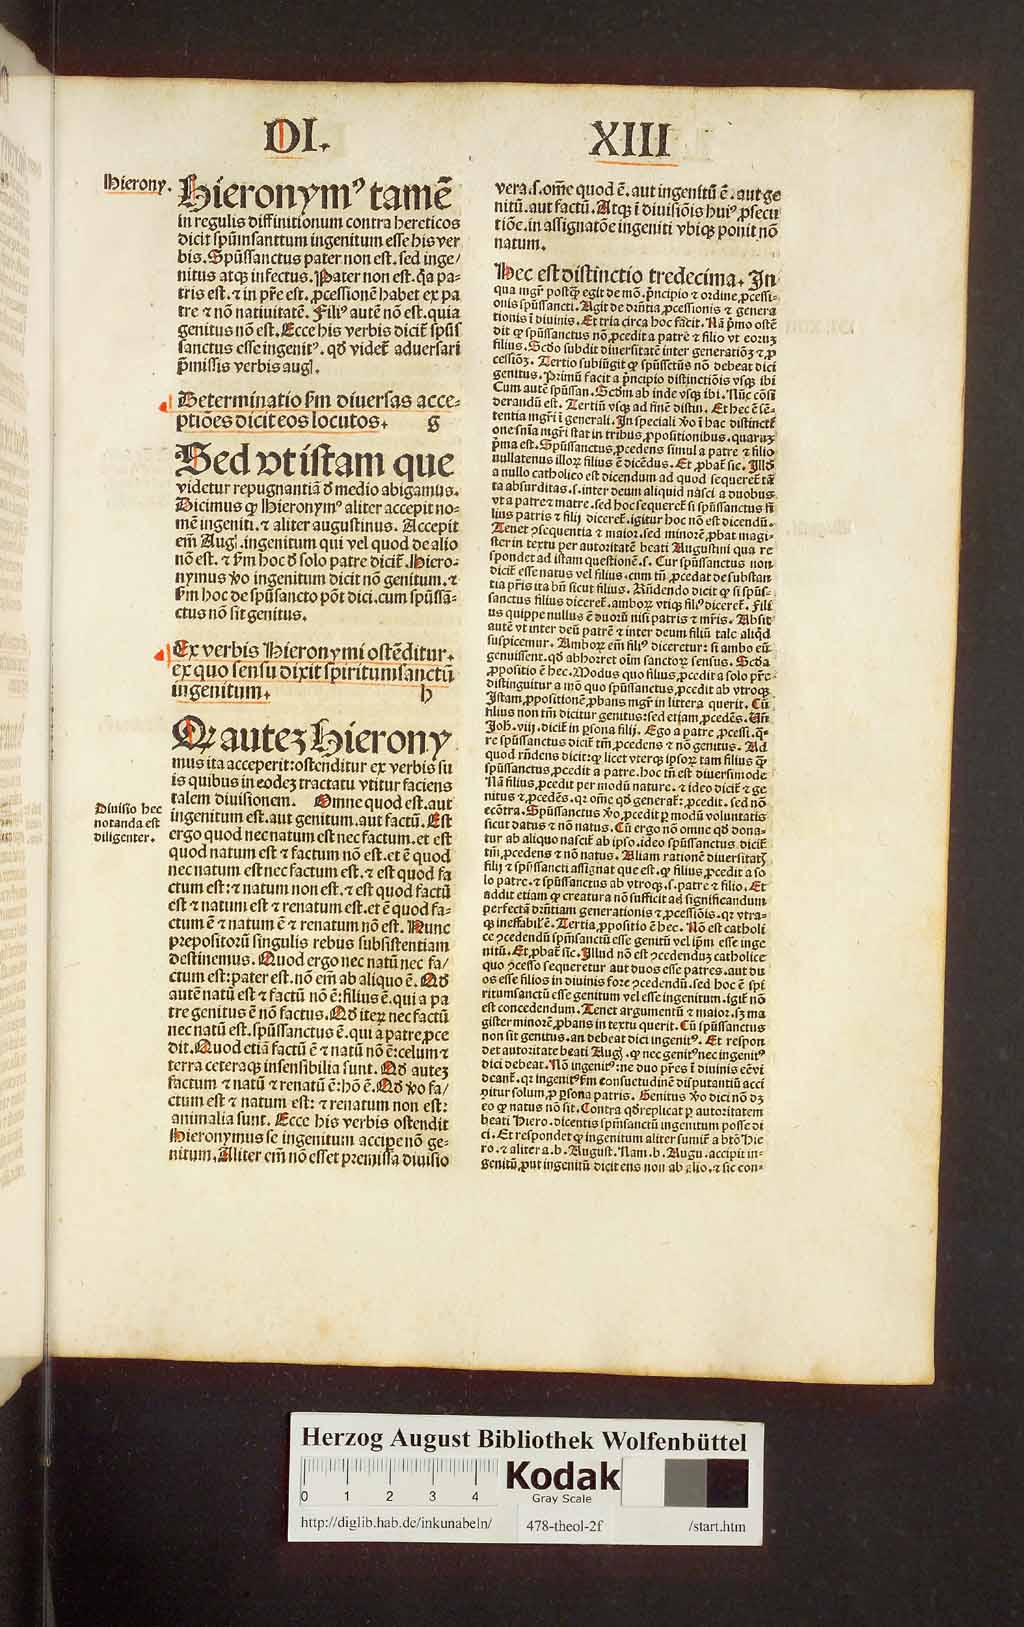 DI.
XIII
Hierony.
Hieronymꝰ tamē
in regulis diffinitionum contra hereticos
dicit spūmsanctum ingenitum esse his ver
bis. Spūssanctus pater non est. sed inge/
nitus atqꝫ infectus. Pater non est. q̃a pa-
tris est. ⁊ in p̃re est. ꝓcessionē habet ex pa
tre ⁊ nō natiuitatē. Filiꝰ autē nō est. quia
genitus nō est. Ecce his verbis dicit̃ spūs
sanctus esse ingenitꝰ. qđ videt̃ aduersari
p̃missis verbis augꝭ.
Determinatio s̃m diuersas acce-
ptiōes dicit eos locutos. g
Sed vt istam que
videtur repugnantiā đ medio abigamus.
Dicimus ꝙ Hieronymꝰ aliter accepit no-
mē ingeniti. ⁊ aliter augustinus. Accepit
em̄ Augꝭ. ingenitum qui vel quod de alio
nō est. ⁊ s̃m hoc đ solo patre dicit̃. Hiero-
nymus ꝟo ingenitum dicit nō genitum. ⁊
s̃m hoc de spūsancto pōt dici. cum spūssā-
ctus nō sit genitus.
Ex verbis Hieronymi ostēditur.
ex quo sensu dixit spiritumsanctū
ingenitum. h
Qꝫ auteꝫ Hierony
mus ita acceperit: ostenditur ex verbis su
is quibus in eodeꝫ tractatu vtitur faciens
talem diuisionem. Omne quod est. aut
ingenitum est. aut genitum. aut factū. Est
ergo quod nec natum est nec factum. et est
quod natum est ⁊ factum nō est. et ē quod
nec natum est nec factum est. ⁊ est quod fa
ctum est: ⁊ natum non est. ⁊ est quod factū
est ⁊ natum est ⁊ renatum est. et ē quod fa-
ctum ē ⁊ natum ē ⁊ renatum nō est. Nunc
prepositorū singulis rebus subsistentiam
destinemus. Quod ergo nec natū nec fa/
ctum est: pater est. nō em̄ ab aliquo ē. Qđ
autē natū est ⁊ factū nō ē: filius ē. qui a pa
tre genitus ē nō factus. Qđ iteꝝ nec factū
nec natū est. spūssanctus ē. qui a patre ꝓce
dit. Quod etiā factū ē ⁊ natū nō ē: celum ⁊
terra ceteraqꝫ insensibilia sunt. Qđ auteꝫ
factum ⁊ natū ⁊ renatū ē: hō ē. Qđ ꝟo fa/
ctum est ⁊ natum est: ⁊ renatum non est:
animalia sunt. Ecce his verbis ostendit
Hieronymus se ingenitum accipe nō ge-
nitum. Aliter em̄ nō esset premissa diuisio
Diuisio hec
notanda est
diligenter.
vera. s. om̄e quod ē. aut ingenitū ē. aut ge
nitū. aut factū. Atqꝫ ī diuisiōis huiꝰ ꝓsecu
tiōe. in assignatōe ingeniti vbiqꝫ ponit nō
natum.
Hec est distinctio tredecima. In
qua mgr̃ postꝙ̃ egit de mō. p̃ncipio ⁊ ordine ꝓcessi-
onis spūssancti. Agit de dr̃ntia ꝓcessionis ⁊ genera
tionis ī diuinis. Et tria circa hoc facit. Nā p̃mo ostē
dit ꝙ spūssanctus nō ꝓcedit a patre ⁊ filio vt eorum
filius. Scđo subdit diuersitatē inter generationē ⁊ ꝓ
cessiōꝫ. Tertio subiūgit ꝙ spūssctūs nō debeat dici
genitus. Primū facit a p̃ncipio distinctiōis vsqꝫ ibi
Cum autē spūssan. Scđm ab inde vsqꝫ ibi. Nūc cōsi
derandū est. Tertiū vsqꝫ ad finē distin. Et hec ē sē-
tentia mgr̃i ī generali. In speciali ꝟo ī hac distinct̃
one sn̄ia mgr̃i stat in tribus ꝓpositionibus. quaruꝫ
p̃ma est. Spūssanctus ꝓcedens simul a patre ⁊ filio
nullatenus illoꝝ filius ē dicēdus. Et ꝓbat̃ sic. Illđ
a nullo catholico est dicendum ad quod sequeret̃ tā
ta absurditas. s. inter deum aliquid nasci a duobus
vt a patre ⁊ matre. sed hoc sequeret̃ si spūssanctus fi
lius patris ⁊ filij diceret̃. igitur hoc nō est dicendū.
Tenet ꝯsequentia ⁊ maior. sed minorē ꝓbat magi-
ster in textu per autoritatē beati Augustini qua re
spondet ad istam questionē. s. Cur spūssanctus non
dicit̃ esse natus vel filius. cum tn̄ ꝓcedat de substan
tia p̃ris ita bn̄ sicut filius. Rn̄dendo dicit ꝙ si spūs-
sanctus filius diceret̃. amboꝝ vtiqꝫ filiꝰ diceret̃. Fili
us quippe nullus ē duorū nisi patris ⁊ mr̃is. Absit
autē vt inter deū patrē ⁊ inter deum filiū tale aliqđ
suspicemur. Amboꝝ em̄ filiꝰ diceretur: si ambo eū
genuissent. qđ abhorret oīm sanctoꝝ sensus. Scđa
ꝓpositio ē hec. Modus quo filius ꝓcedit a solo p̃re-
distinguitur a mō quo spūssanctus ꝓcedit ab vtroqꝫ
Istam ꝓpositionē ꝓbans mgr̃ in littera querit. Cū
filius non tm̄ dicitur genitus: sed etiam ꝓcedēs. Un̄
Joh. viij. dicit̃ in ꝑsona filij. Ego a patre ꝓcessi. q̃-
re spūssanctus dicit̃ tm̄ ꝓcedens ⁊ nō genitus. Ad
quod rn̄dens dicit: ꝙ licet vterqꝫ ipsoꝝ tam filius ꝙ̃
spūssanctus ꝓcedit a patre. hoc tn̄ est diuersimode
Nā filius ꝓcedit per modū nature. ⁊ ideo dicit̃ ⁊ ge-
nitus ⁊ ꝓcedēs. qꝛ om̄e qđ generat̃: ꝓcedit. sed nō
ecōtra. Spūssanctus ꝟo ꝓcedit ꝑ modū voluntatis
sicut datus ⁊ nō natus. Cū ergo nō omne qđ dona-
tur ab aliquo nascit̃ ab ipso. ideo spūssanctus dicit̃
tm̄ ꝓcedens ⁊ nō natus. Aliam rationē diuersitatꝭ
filij ⁊ spūssancti assignat que est. ꝙ filius ꝓcedit a so
lo patre. ⁊ spūssanctus ab vtroqꝫ. s. patre ⁊ filio. Et
addit etiam ꝙ creatura nō sufficit ad significandum
perfectā dr̃ntiam generationis ⁊ ꝓcessiōis. qꝛ vtra-
qꝫ ineffabiľ ē. Tertia ꝓpositio ē hec. Nō est catholi
ce ꝯcedendū spm̄sanctū esse genitū vel ip̄m esse inge
nitū. Et ꝓbat̃ sic. Illud nō est ꝯcedenduꝫ catholice
quo ꝯcesso sequeretur aut duos esse patres. aut du
os esse filios in diuinis fore ꝯcedendū. sed hoc ē spi
ritumsanctū esse genitum vel esse ingenitum. igit̃ nō
est concedendum. Tenet argumentū ⁊ maior. sꝫ ma
gister minorē ꝓbans in textu querit. Cū spūssanctus
non sit genitus. an debeat dici ingenitꝰ. Et respon
det autoritate beati Augꝭ. ꝙ nec genitꝰ nec ingenitꝰ
dici debeat. Nō ingenitꝰ: ne duo p̃res ī diuinis eē vi
deant̃. qꝛ ingenitꝰ s̃m consuetudinē disputantiū acci
pitur solum ꝓ ꝑsona patris. Genitus ꝟo dici nō dꝫ
eo ꝙ natus nō sit. Contra qđ replicat ꝑ autoritatem
beati Hiero. dicentis spūmsanctū ingenitum posse di
ci. Et respondet ꝙ ingenitum aliter sumit̃ a btō Hie
ro. ⁊ aliter a. b. August. Nam. b. Augu. accipit in-
genitū ꝓut ingenitū dicit ens non ab alio. ⁊ sic con-
Herzog August Bibliothek Wolfenbüttel
0 1 2 3 4
Kodak
Gray Scale
http://diglib.hab.de/inkunabeln/
478-theol-2f
/start.htm